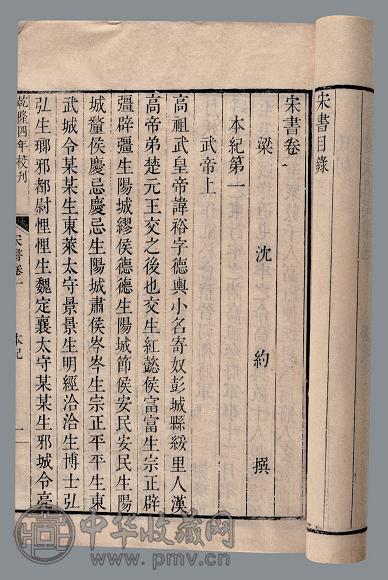 宋書目錄
宋書卷一
梁沈約撰
本紀第一
武帝上
高祖武皇帝諱裕字德輿小名寄奴彭城縣綏里人漢
高帝弟楚元王交之後也交生紅懿侯富富生宗正辟
彊辟彊生陽城繆侯德德生陽城節侯安民安民生陽
城釐侯慶忌慶忌生陽城肅侯岑岑生宗正平平生東
武城令某某生東萊太守景景生明經洽洽生博士弘
弘生瑯邪都尉悝悝生魏定襄太守某某生邪城令亮
乾隆四年校刊
宋書卷一
本紀
一
中华收藏网
www.pmv.cn